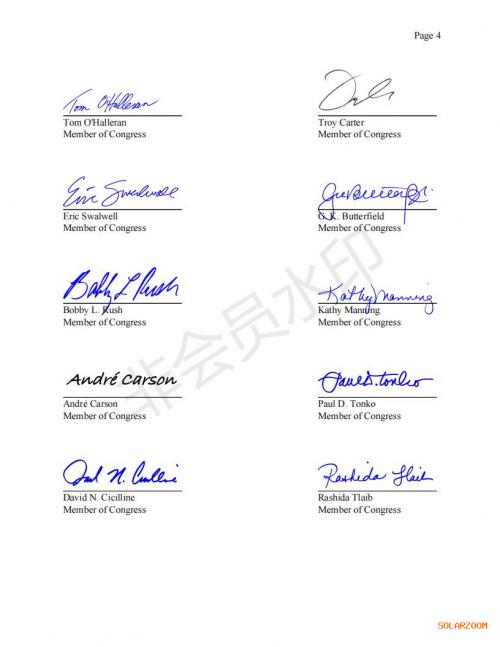 Page 4
Tom O'Halleran
Tom O'Halleran
Member of Congress
Troy Carter
Member of Congress
Eric Swalwell
Eric Swalwell
Member of Congress
G.K. Butterfield
Member of Congress
Bobby L Rush
Bobby L. Rush
Member of Congress
Kathy Manning
Kathy Manning
Member of Congress
André Carson
André Carson
Member of Congress
Paul D. Tonko
Paul D. Tonko
Member of Congress
David N. Cicilline
Member of Congress
Rashida Tlaib
Rashida Tlaib
Member of Congress
非会员水印
SOLARZOOM